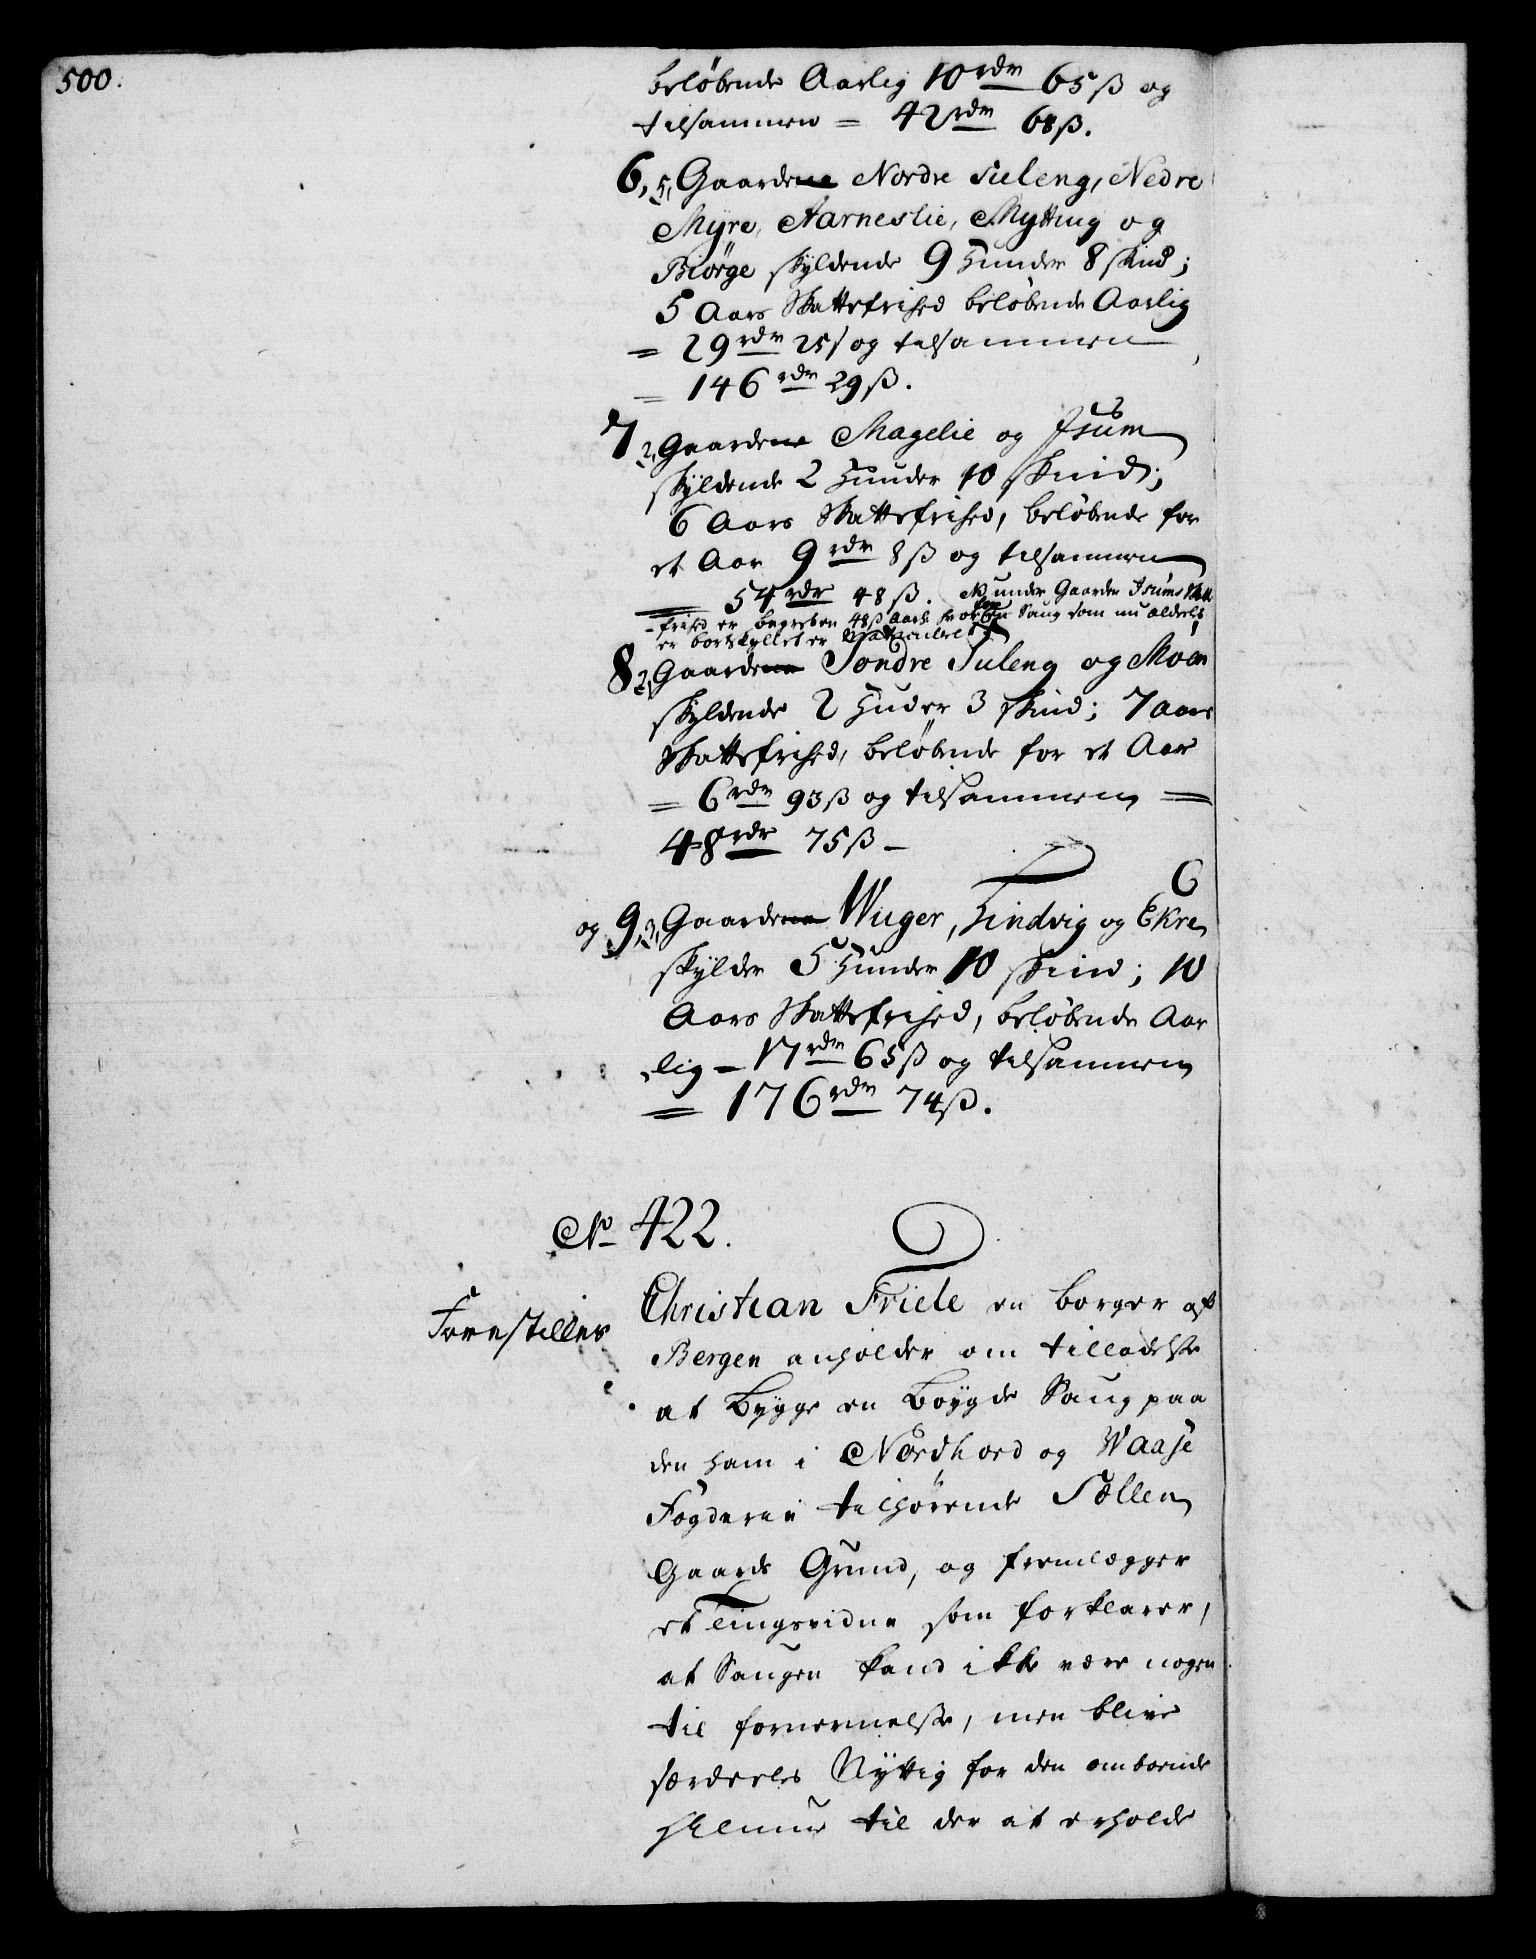 500.
beløbende Aarlig 10 rdr 65 ß og
tilsammen = 42 rdr 68 ß.
6, 5, Gaardene Nordre Sueleng, Nedre
Myre, Aarneslie, Mytting og
Biørge skyldende 9 Hunder 8 skind;
5 Aars Skattefrihed beløbende Aarlig
= 29 rdr 25 ß og tilsammen
= 146 rdr 29 ß.
7 2, Gaardene Magelie og Isum
skyldende 2 Hunder 10 skind;
6 Aars Skattefrihed, beløbende for
et Aar 9 rdr 8 ß og tilsammen
= 54 rdr 48 ß. NB under Gaarden Isums Skatte
frihed er begreben 48 ß Aarl: for en Saug som nu aldeles
er bortskyllet
8 2, Gaardene Søndre Suleng og Moen
skyldende 2 Huder 3 skind; 7 aars
Skattefrihed, beløbende for et Aar
= 6 rdr 93 ß og tilsammen =
48 rdr 75 ß –
og 9, 3, Gaardene Wuger, Hindvig og Ekre
skylder 5 Hunder 10 skind; 10
Aars Skattefrihed, beløbende Aar
lig – 17 rdr 65 ß og tilsammen
= 176 rdr 74 ß.
No 422.
Forestilles
Christian Friele en borger af
Bergen anholder om tilladelse
at bygge en Bøygde Saug paa
den ham i Nordhord og Waase
Fogderie tilhørende Sællen
Gaards Grund, og fremlægger
et Tingsvidne som forklarer,
at Saugen kand ikke være nogen
til fornermelse, men blive
særdeeles Nyttig for den omboende
Almue til der at erholde